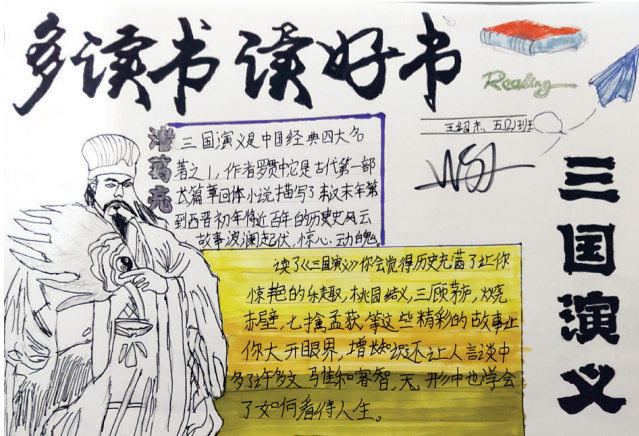 多读书读好书
Reading
王绍杰 五(2)班
诸葛亮
三国演义是中国经典四大名
著之1,作者罗贯中它是古代第一部
长篇章回体小说描写了东汉末年
到西晋初年将近百年的历史风云
故事波澜起伏,惊心动魄。
三国演义
读了《三国演义》你会觉得历史充满了让你
惊艳的乐趣,桃园结义,三顾茅庐,火烧
赤壁,七擒孟获,等这些精彩的故事让
你大开眼界,增长知识还让人言谈中
多了许多文雅和睿智,无形中也学会
了如何看待人生。